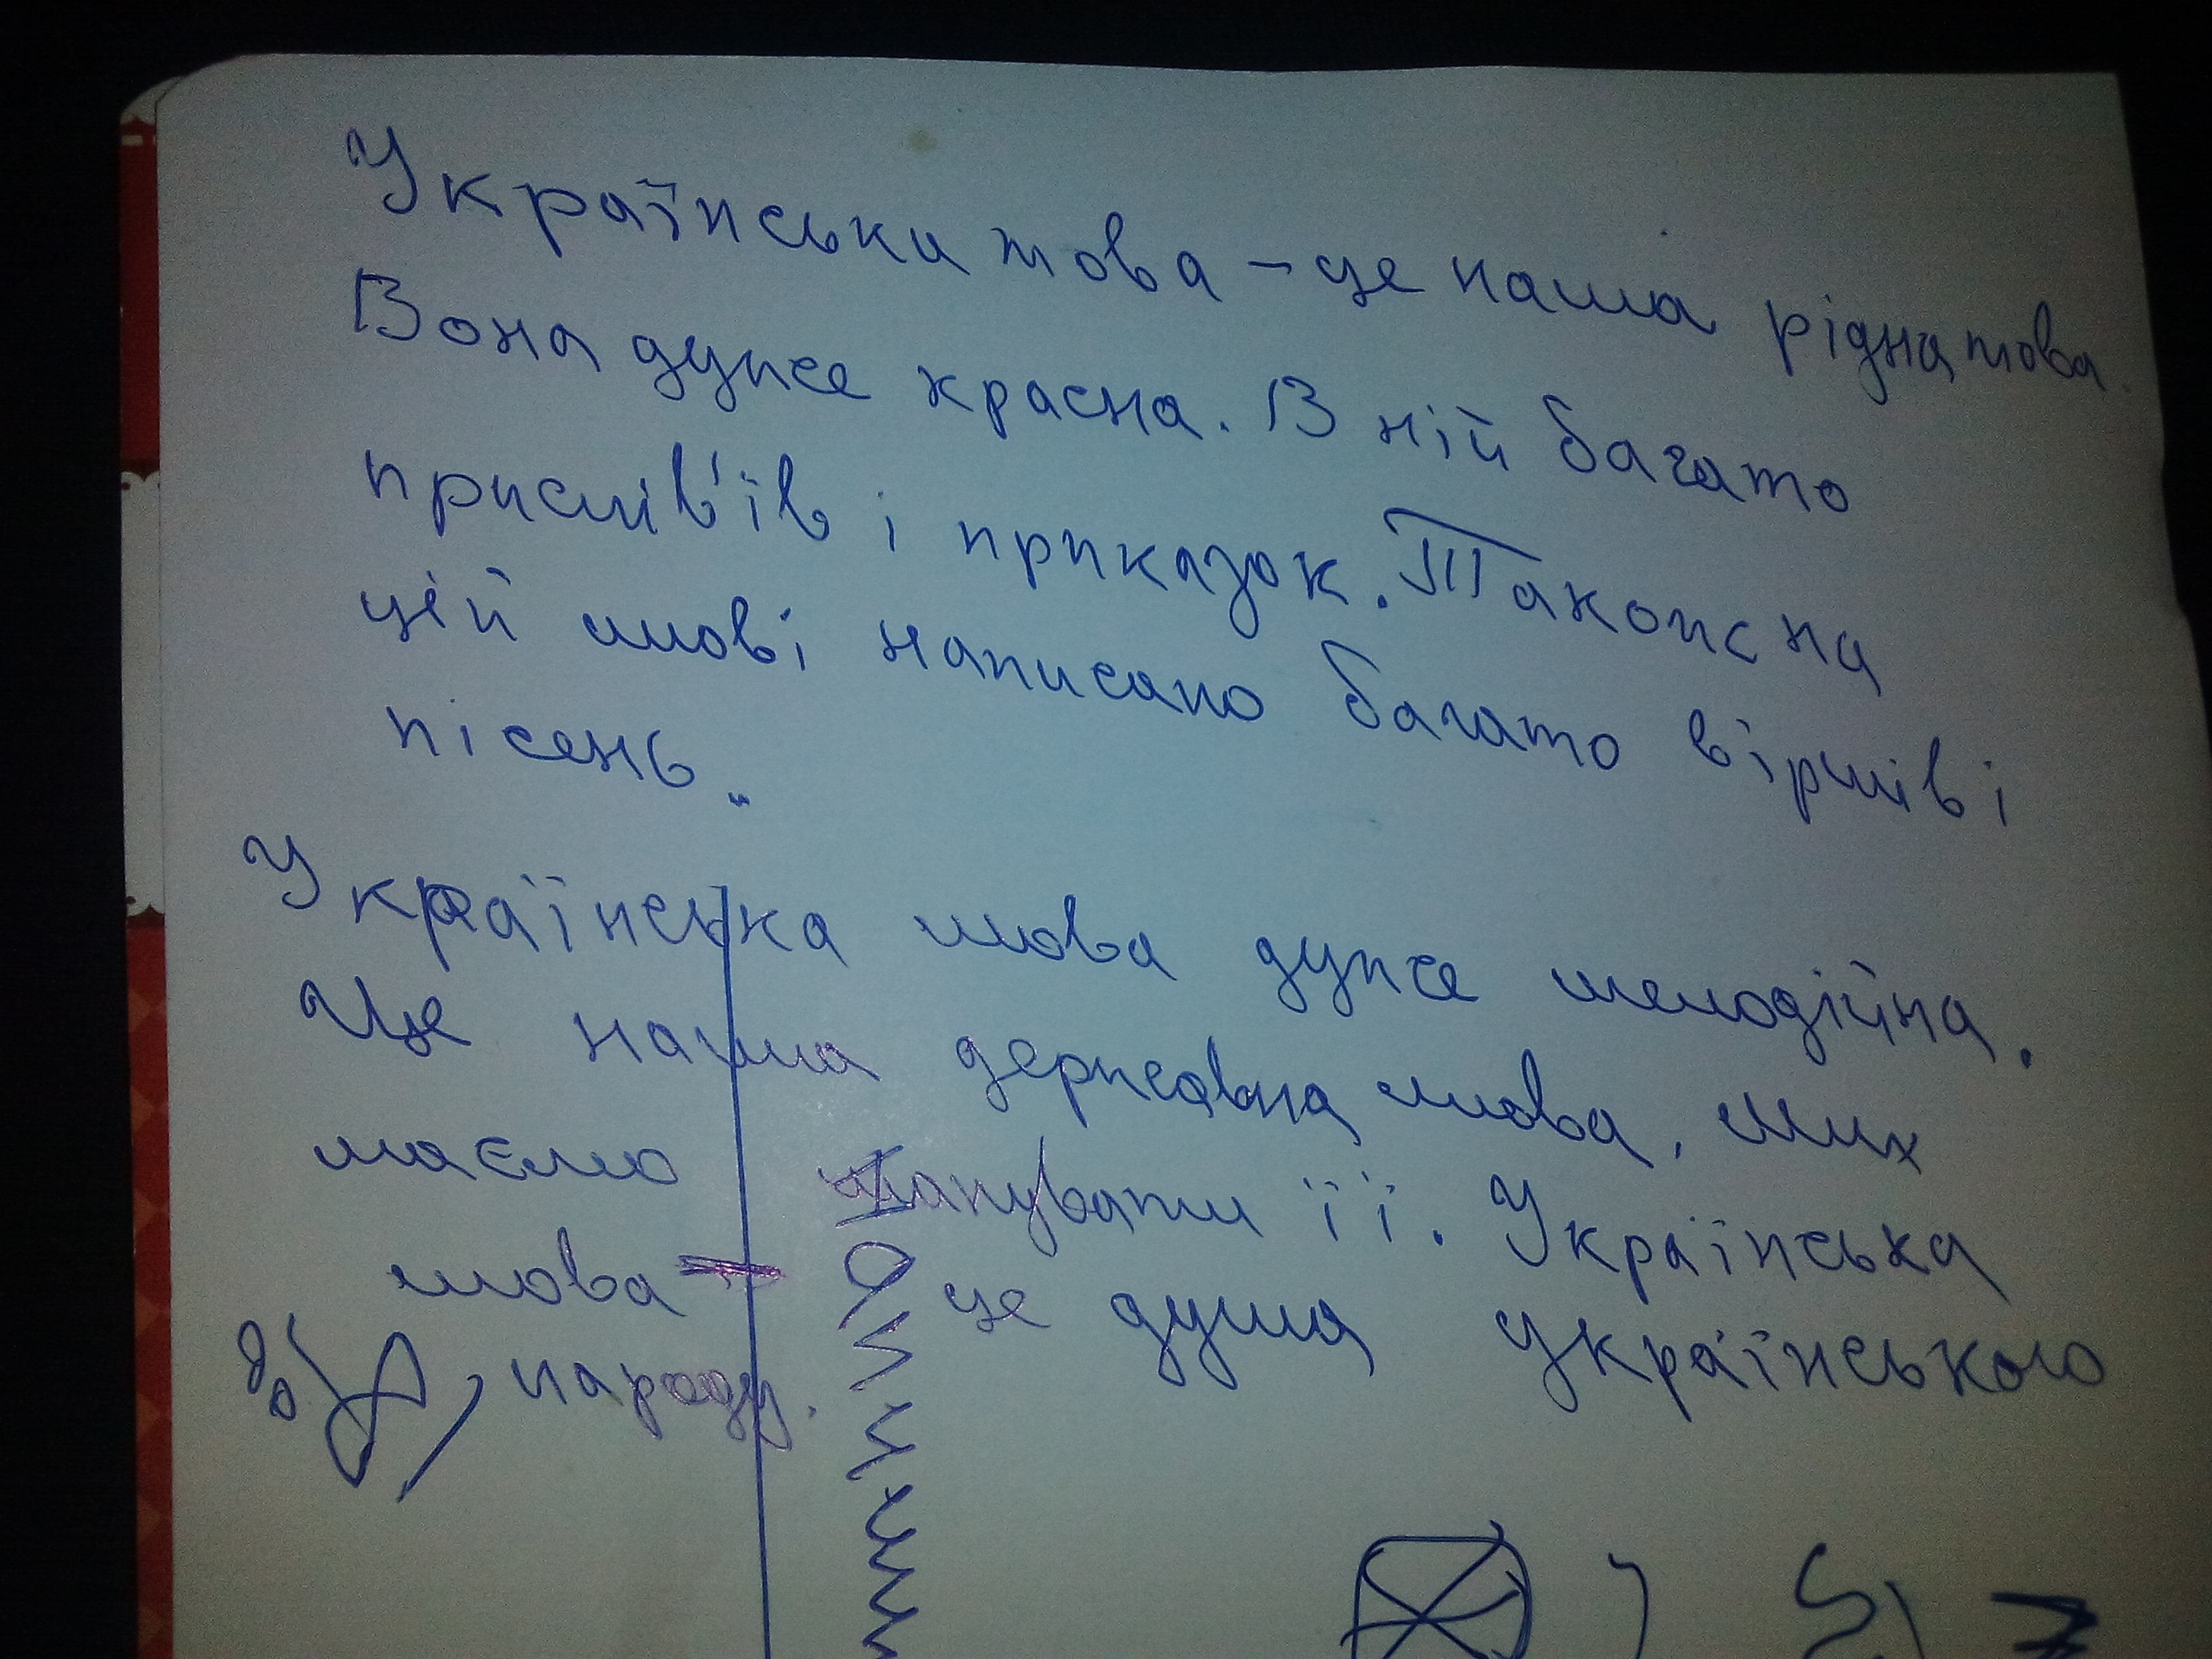 Українська мова – це наша рідна мова.
Вона дуже красна. В ній багато
прислів'їв і приказок. Також на
цій мові написано багато віршів і
пісень.
Українська мова дуже мелодійна.
Це наша державна мова. Ми
маємо шанувати її. Українська
мова – це душа українського
народу.